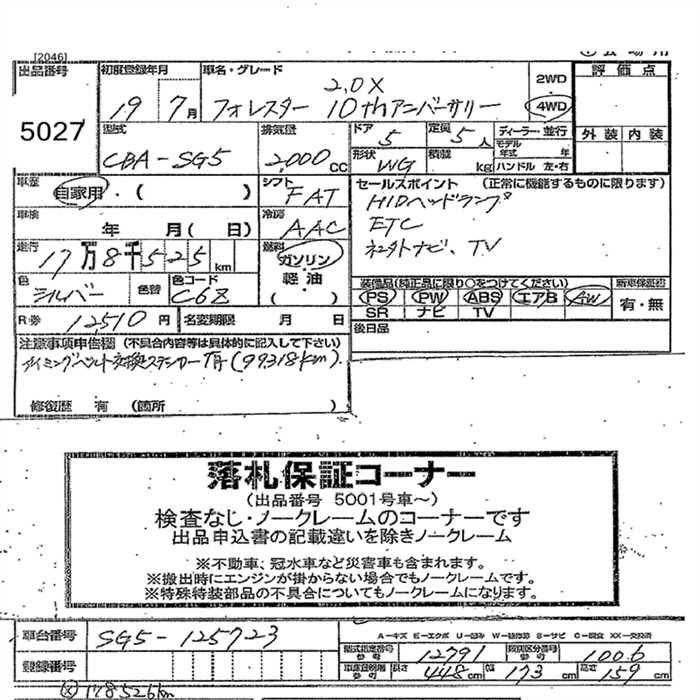 [2046]
出品番号 初度登録年月 車名・グレード 2WD 評価点
5027 19 7月 2.0X
フォレスター 10thアニバーサリー 4WD
型式 排気量 ドア 定員 ディーラー・並行 外装 内装
CBA-SG5 2,000cc 5 5人 モデル年式 年
形状 積載 ハンドル 左・右
WG kg
車歴 自家用・( ) シフト FAT セールスポイント (正常に機能するものに限ります)
車検 年 月(日) 冷房 AAC HIDヘッドランプ
ETC
走行 17万8千525km 燃料 ガソリン ナビ、TV
軽油・( )
色 シルバー 色替 色コード C6Z 装備品(純正品に限り○をつけてください) 新車保証書
PS PW ABS エアB AW 有・無
SR ナビ TV
R券 12,510円 名変期限 月 日 後日品
注意事項申告欄 (不具合内容等は具体的に記入して下さい)
タイミングベルト交換ステッカー有(99318km)
修復歴 有 (箇所 )
落札保証コーナー
(出品番号 5001号車~)
検査なし・ノークレームのコーナーです
出品申込書の記載違いを除きノークレーム
※不動車、冠水車など災害車も含まれます。
※搬出時にエンジンが掛からない場合でもノークレームです。
※特殊特装部品の不具合についてもノークレームになります。
車台番号 SG5-125723
型式指定番号 12791 類別区分番号 1006
登録番号 長さ 448cm 幅 173cm 高さ 159cm
178526km